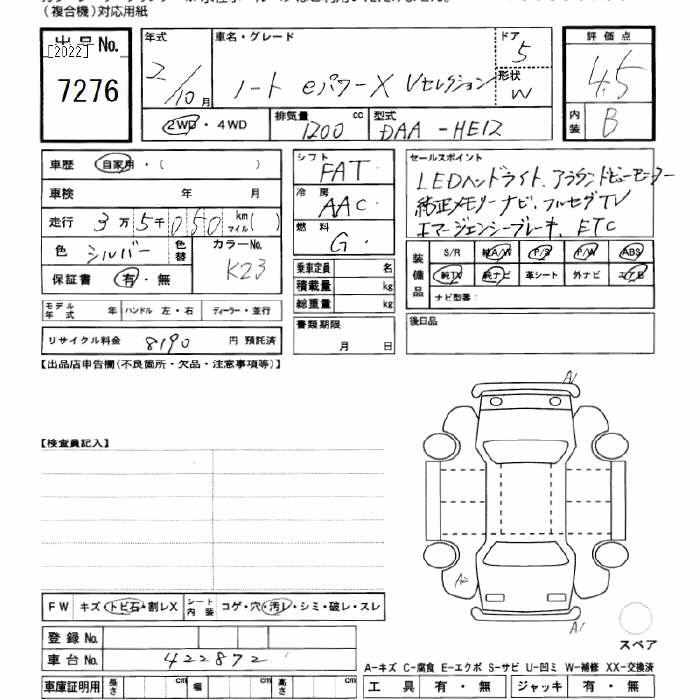 (複合機)対応用紙
出品No. [2022] 7276
年式 2/10月
車名・グレード ノート eパワーX Vセレクション
ドア 5
形状 W
評価点 4.5
内装 B
2WD・4WD
排気量 1200 cc
型式 DAA-HE12
車歴 自家用・( )
車検 年 月
走行 3万5千050 km マイル( )
色 シルバー 色替 カラーNo. K23
保証書 有・無
モデル年式 年 ハンドル 左・右 ディーラー・並行
リサイクル料金 8190 円 預託済
シフト FAT
冷房 AAC
燃料 G
乗車定員 名
積載量 kg
総重量 kg
書類期限 月 日
セールスポイント
LEDヘッドライト、アラウンドビューモニター
純正メモリーナビ、フルセグTV
エマージェンシーブレーキ、ETC
装備品 S/R 純A/W P/S P/W ABS
純TV 純ナビ 革シート 外ナビ エアB
ナビ型番:
後日品
【出品店申告欄(不良箇所・欠品・注意事項等)】
【検査員記入】
A1
A2
A1
FW キズ・トビ石・割レX シート内装 コゲ・穴・汚レ・シミ・破レ・スレ
登録No.
車台No. 422872
車庫証明用 長さ cm 幅 cm 高さ cm
スペア
A-キズ C-腐食 E-エクボ S-サビ U-凹ミ W-補修 XX-交換済
工具 有・無 ジャッキ 有・無